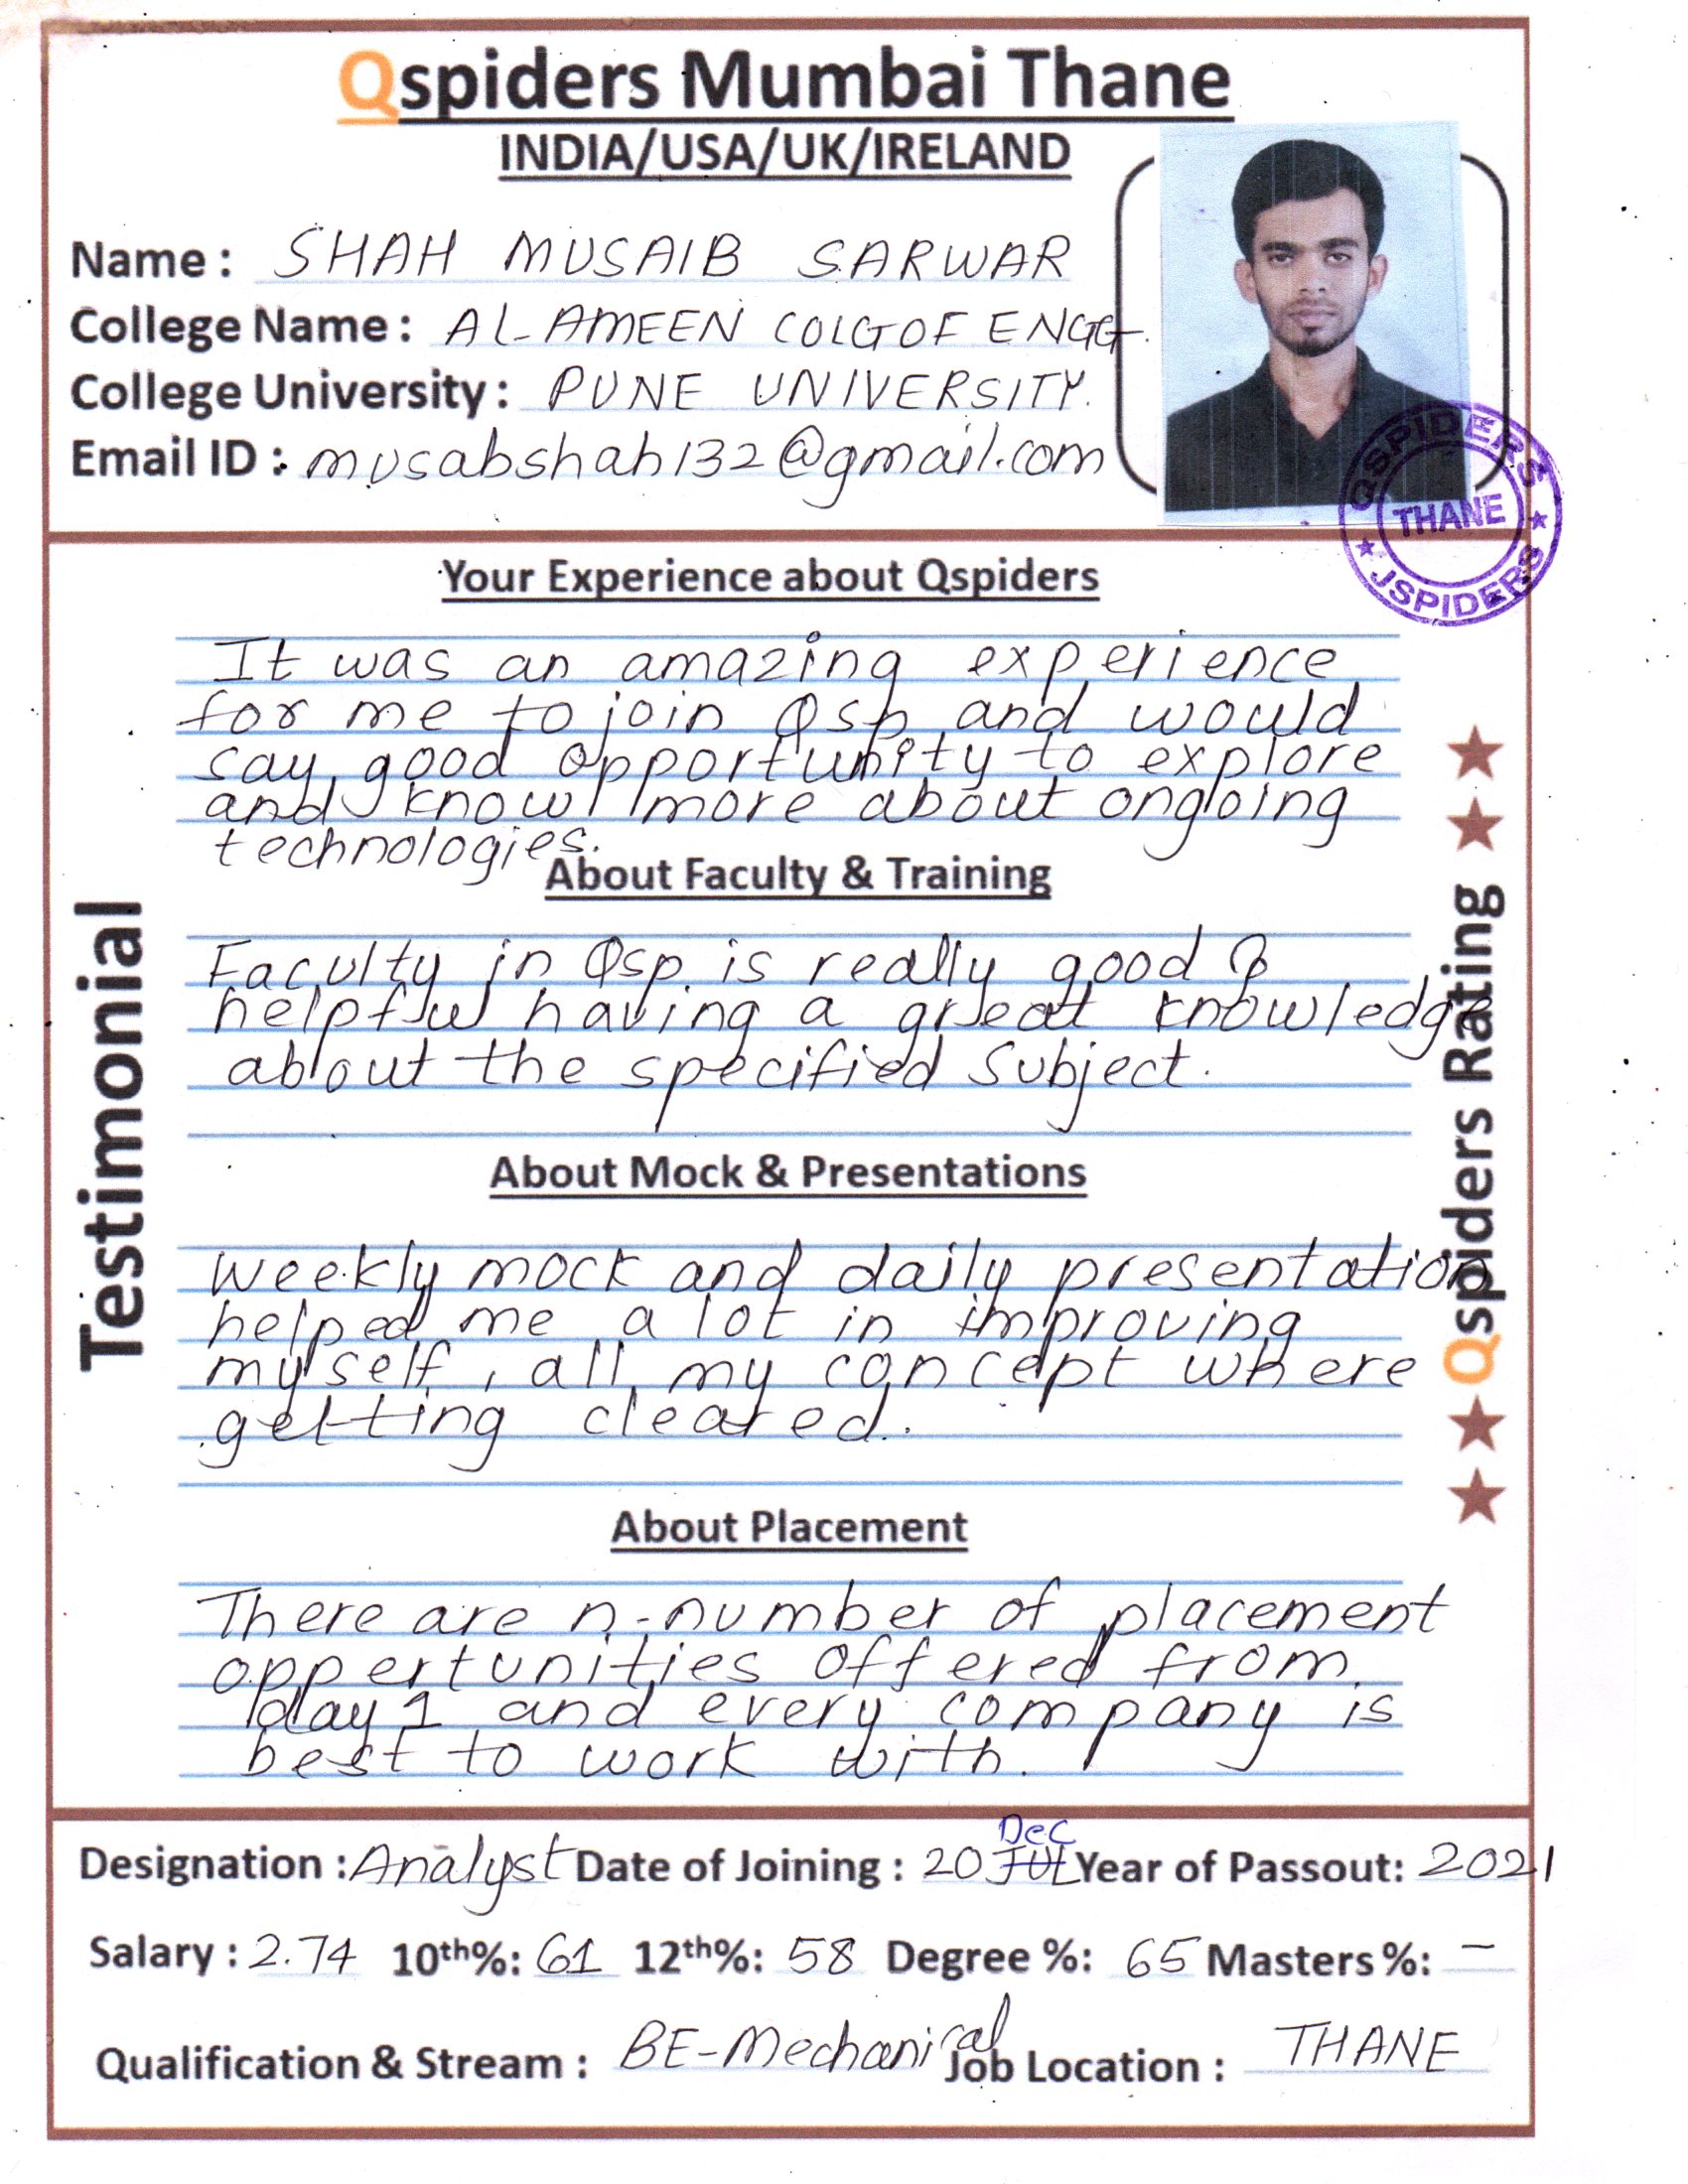 Qspiders Mumbai Thane
INDIA/USA/UK/IRELAND
Name : SHAH MUSAIB SARWAR
College Name : AL-AMEEN COLG OF ENGG.
College University : PUNE UNIVERSITY.
Email ID : musabshah132@gmail.com
QSPIDERS
THANE
JSPIDERS
Your Experience about Qspiders
It was an amazing experience
for me to join Qsp and would
say good opportunity to explore
and know more about ongoing
technologies.
About Faculty & Training
Faculty in Qsp is really good &
helpful having a great knowledge
about the specified subject.
About Mock & Presentations
Weekly mock and daily presentation
helped me a lot in improving
myself, all my concept where
getting cleared.
About Placement
There are n-number of placement
oppertunities offered from
day 1 and every company is
best to work with.
Testimonial
Qspiders Rating
Designation : Analyst Date of Joining : 20 JUL Dec Year of Passout: 2021
Salary : 2.74 10th%: 61 12th%: 58 Degree %: 65 Masters %: –
Qualification & Stream : BE-Mechanical Job Location : THANE